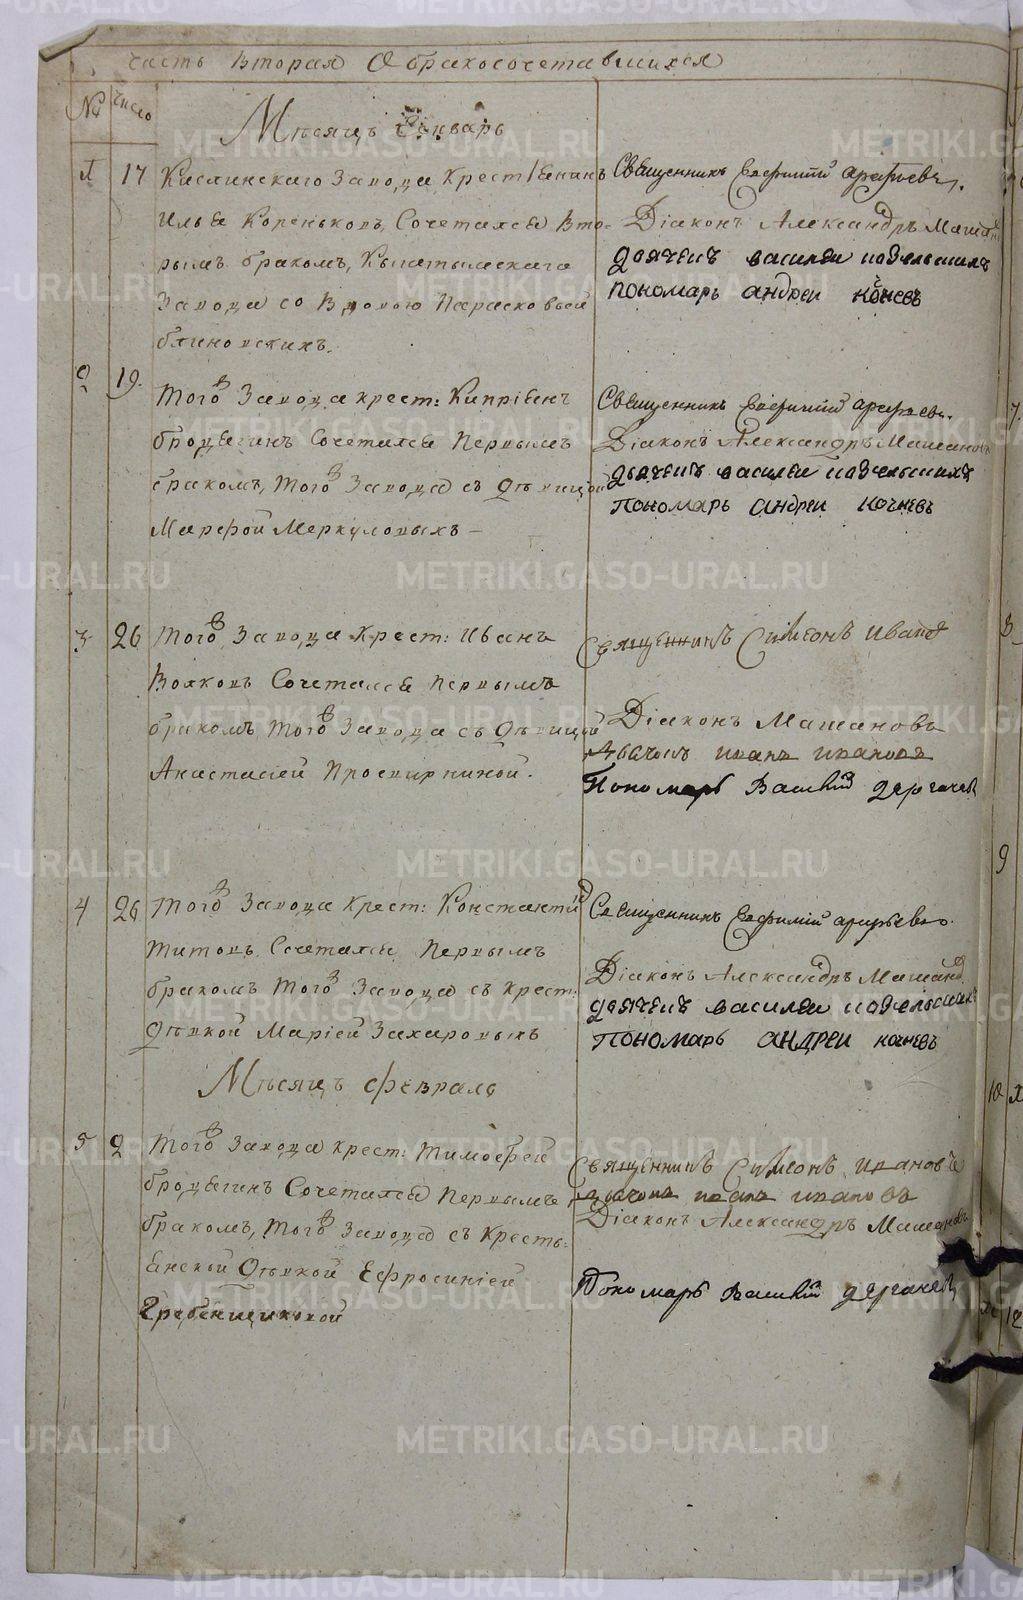 Часть Вторая О бракосочетавшихся
№
число
Мѣсяцъ Генварь
1
17
Каслинскаго Завода Крестіянинъ
Илья Кореньковъ, Сочетался вто-
рымъ бракомъ, Кыштымскаго
Завода со Вдовою Парасковьей
блиновскихъ.
Священникъ Евфимій Арефьевъ.
Діаконъ Александръ Машан
дьячекъ василеи
пономарь андреи кочневъ
2
19.
Того Завода крест: Кипріянъ
бродягинъ Сочетался первымъ
бракомъ, Того Завода съ Дѣвицой
Марефой Меркуловыхъ –
Священникъ Евфимій Арефьевъ.
Діаконъ Александръ Машановъ
дьячекъ василеи
пономарь андреи кочневъ
3
26
Того Завода Крест: Иванъ
Волковъ Сочетался первымъ
бракомъ, Того Завода съ Дѣвицей
Анастасіей Просвирниной.
Священникъ Симеонъ Иванов
Діаконъ Машановъ
Дьячокъ иванъ ивановъ
Пономарь Василій дергачев
4
26
Того Завода крест: Константин
Титовъ Сочетался первымъ
бракомъ Того Завода съ крест:
Дѣвкой Маріей Захаровыхъ
Священникъ Евфимій Арефьевъ.
Діаконъ Александръ Машанов
дьячекъ василеи
пономарь андреи кочневъ
Мѣсяцъ февраль
5
2
Того Завода крест: Тимофей
бродягинъ Сочетался первымъ
бракомъ, Того Завода съ Кресть-
янской Дѣвкой Ефросиніей
Гребенщиковой
Священникъ Симеонъ Ивановъ
дьячокъ иванъ ивановъ
Діаконъ Александръ Машановъ
Пономарь Василій дергачев
METRIKI.GASO-URAL.RU